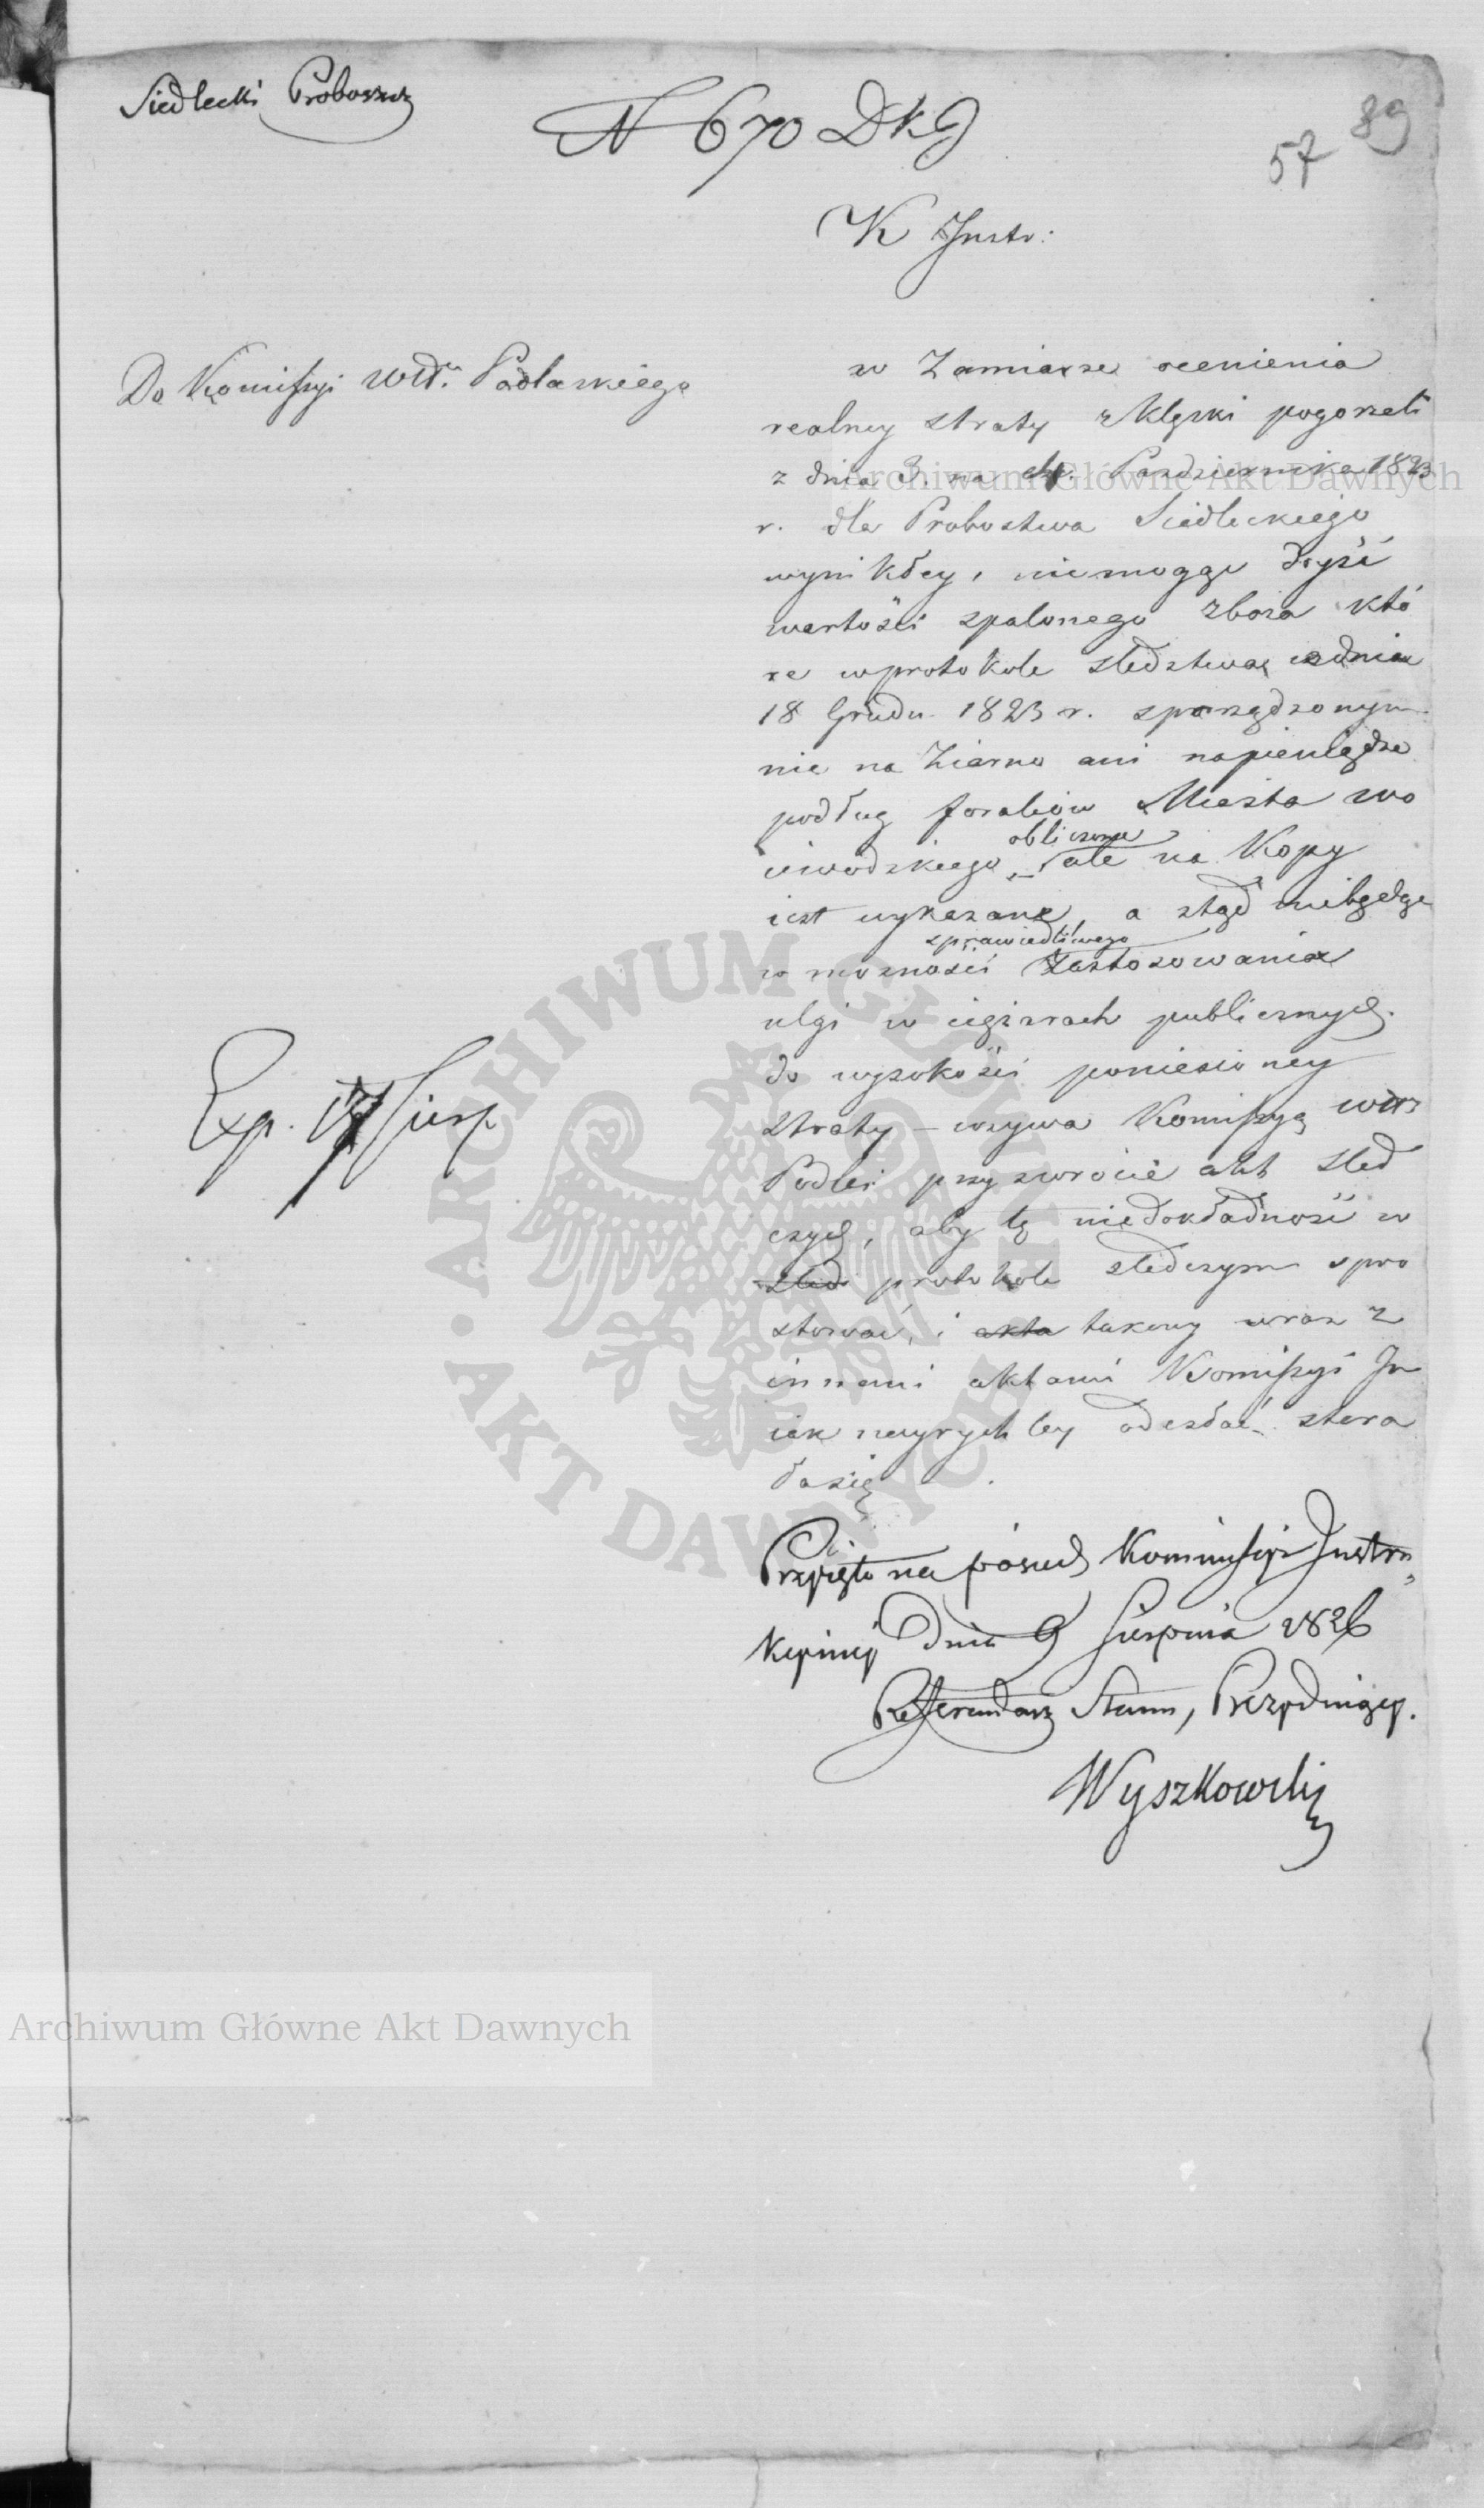 Siedlecki Proboszcz
N 670 DKG
89
57
K Instr:
Do Komissyi Wdt. Podlaskiego
w Zamiarze ocenienia
realney straty z Klęski pogorzeli
z dnia 3. na 4. Pazdziernika 1823
r. dla Probostwa Siedleckiego
wynikłey, niemogąc doyść
wartości spalonego zboża któ
re w protokole sledztwa z dnia
18 Grudn. 1823 r. sporządzonym
nie na Ziarno ani na pieniądze
podług foraliów Miasta Wo
iewodzkiego obliczone ale na Kopy
iest wykazane, a ztąd niebędąc
w możności sprawiedliwego zastosowania
ulgi w ciężarach publicznych
do wysokości poniesioney
straty – wzywa Komissyą Wdz
Podlas: przy zwrocie akt śled
czych, aby tę niedokładność w
śled protokole śledczym spro
stować, i akta takowy wraz z
innemi aktami Komissyi In
iak nayrychley odesłać stara
ła się
Przyięto na posied. Kommissyi Instru
kcyiney dnia 9 Sierpnia 1826
Referendarz Stanu, Prezyduiący.
Wyszkowski
Exp. 17 Sierp.
Archiwum Główne Akt Dawnych
ARCHIWUM GŁÓWNE AKT DAWNYCH
Archiwum Główne Akt Dawnych